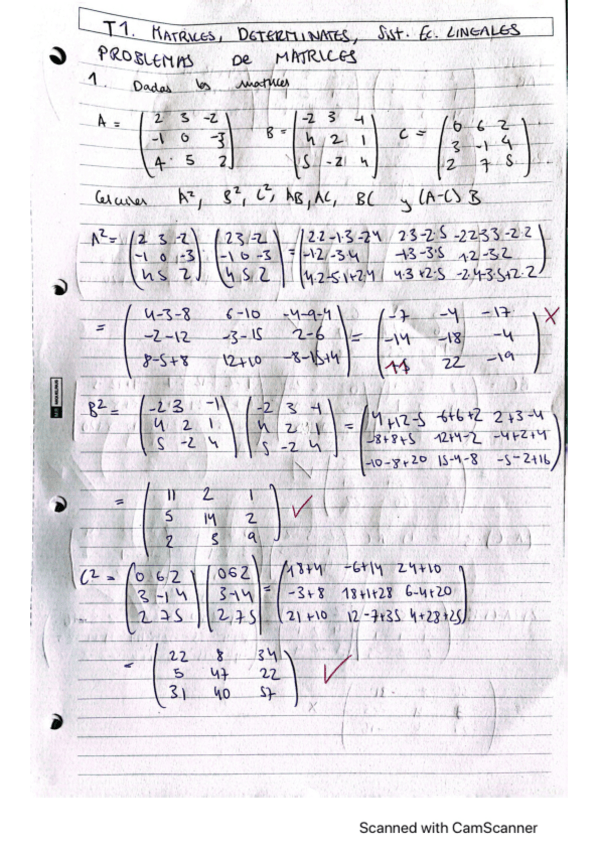 T1. MATRICES, DETERMINATES, Sist. Ec. LINEALES
PROBLEMAS DE MATRICES
1. Dadas las matrices
A = (2 3 -2; -1 0 -3; 4 5 2) B = (-2 3 -1; 4 2 1; 5 -2 4) C = (0 6 2; 3 -1 4; 2 7 5)
Calcular A², B², C², AB, AC, BC y (A-C) B
A² = (2 3 -2; -1 0 -3; 4 5 2) · (2 3 -2; -1 0 -3; 4 5 2) = (2·2-1·3-2·4 2·3-2·5 -2·2-3·3-2·2; -1·2-3·4 -1·3-3·5 1·2-3·2; 4·2-5·1+2·4 4·3+2·5 -2·4-3·5+2·2)
= (4-3-8 6-10 -4-9-4; -2-12 -3-15 2-6; 8-5+8 12+10 -8-15+4) = (-7 -4 -17; -14 -18 -4; 11 22 -19) X
B² = (-2 3 -1; 4 2 1; 5 -2 4) (-2 3 -1; 4 2 1; 5 -2 4) = (4+12-5 -6+6+2 2+3-4; -8+8+5 12+4-2 -4+2+4; -10-8+20 15-4-8 -5-2+16)
= (11 2 1; 5 14 2; 2 3 9) ✓
C² = (0 6 2; 3 -1 4; 2 7 5) (0 6 2; 3 -1 4; 2 7 5) = (18+4 -6+14 24+10; -3+8 18+1+28 6-4+20; 21+10 12-7+35 4+28+25)
= (22 8 34; 5 47 22; 31 40 57) ✓
Scanned with CamScanner